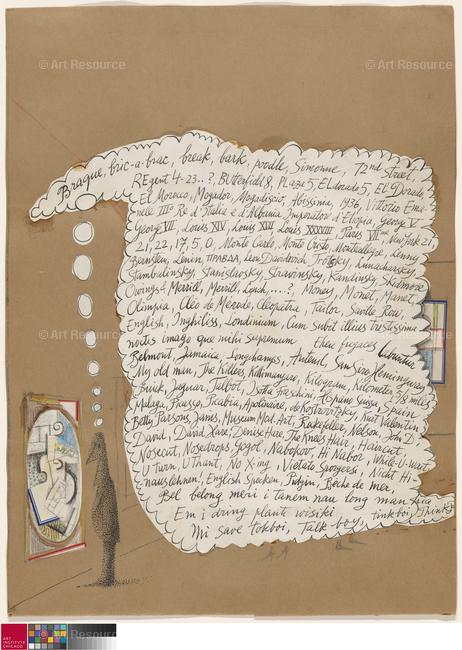 Braque, bric-a-brac, break, bark, poodle, Simonne, 72nd Street,
REgent 4-23..?, BUtterfield 8, PLaza 5, ELdorado 5, El Dorado,
El Morocco, Mogador, Mogadiscio, Abissinia, 1936, Vittorio Ema-
nuele IIIº Re d'Italia e d'Albania Imperatore d'Etiopia, George V
George VII, Louis XIV, Louis XVI Louis XXXXIII Paris VIIme, New York 21,
21, 22, 17, 5, 0, Monte Carlo, Monte Cristo, Montecellyse, Lenny
Bernstein, Lenin, ПРАВДА, Leon Davidovich Trotsky, Lunacharsky,
Stambolinsky, Stanislavsky, Stravinsky, Kandinsky, Skidmore
Owings & Merrill, Merrill, Lynch, ....?, Money, Monet, Manet,
Olimpia, Cléo de Mérode, Cleopatra, Tailor, Savile Row,
English, Inghiliss, Londinium, Cum subit illius tristissima
noctis imago que mihi supremum Eheu fugaces labuntur
Belmont, Jamaica, Longchamps, Auteuil, San Siro, Hemingway,
My old man, The Killers, Killimanjaro, Kilogram, Kilometer 5/8 mile,
Buick, Jaguar, Talbot, Isotta Fraschini, Hispano Suiza, Spain
Malaga, Picasso, Picabia, Apolinaire, de Kostrovitzky, Kurt Valentin
Betty Parsons, Janis, Museum Mod. Art, Rokefeller, Nelson, John D.
David, David Hare, Denise Hare, The Knees Hair, Haircut,
Nosecut, Nosedrops, Gogol, Nabokov, Hi Nabor, While-U-wait
U Turn, U Thant, No X-ing, Vietato Sporgersi, Nicht Hi-
nauslehnen, English Spoken, Pidgin, Beche de mer
Bel belong meri i tanem nau long man
Em i dring planti wisiki tinkboi, Think
Mi save tokboi, Talk-boy,
© Art Resource
© Art Resource
© Art Resource
© Art Resource
© Art Resource
© Art Resource
ART
INSTITVTE
CHICAGO
Resource